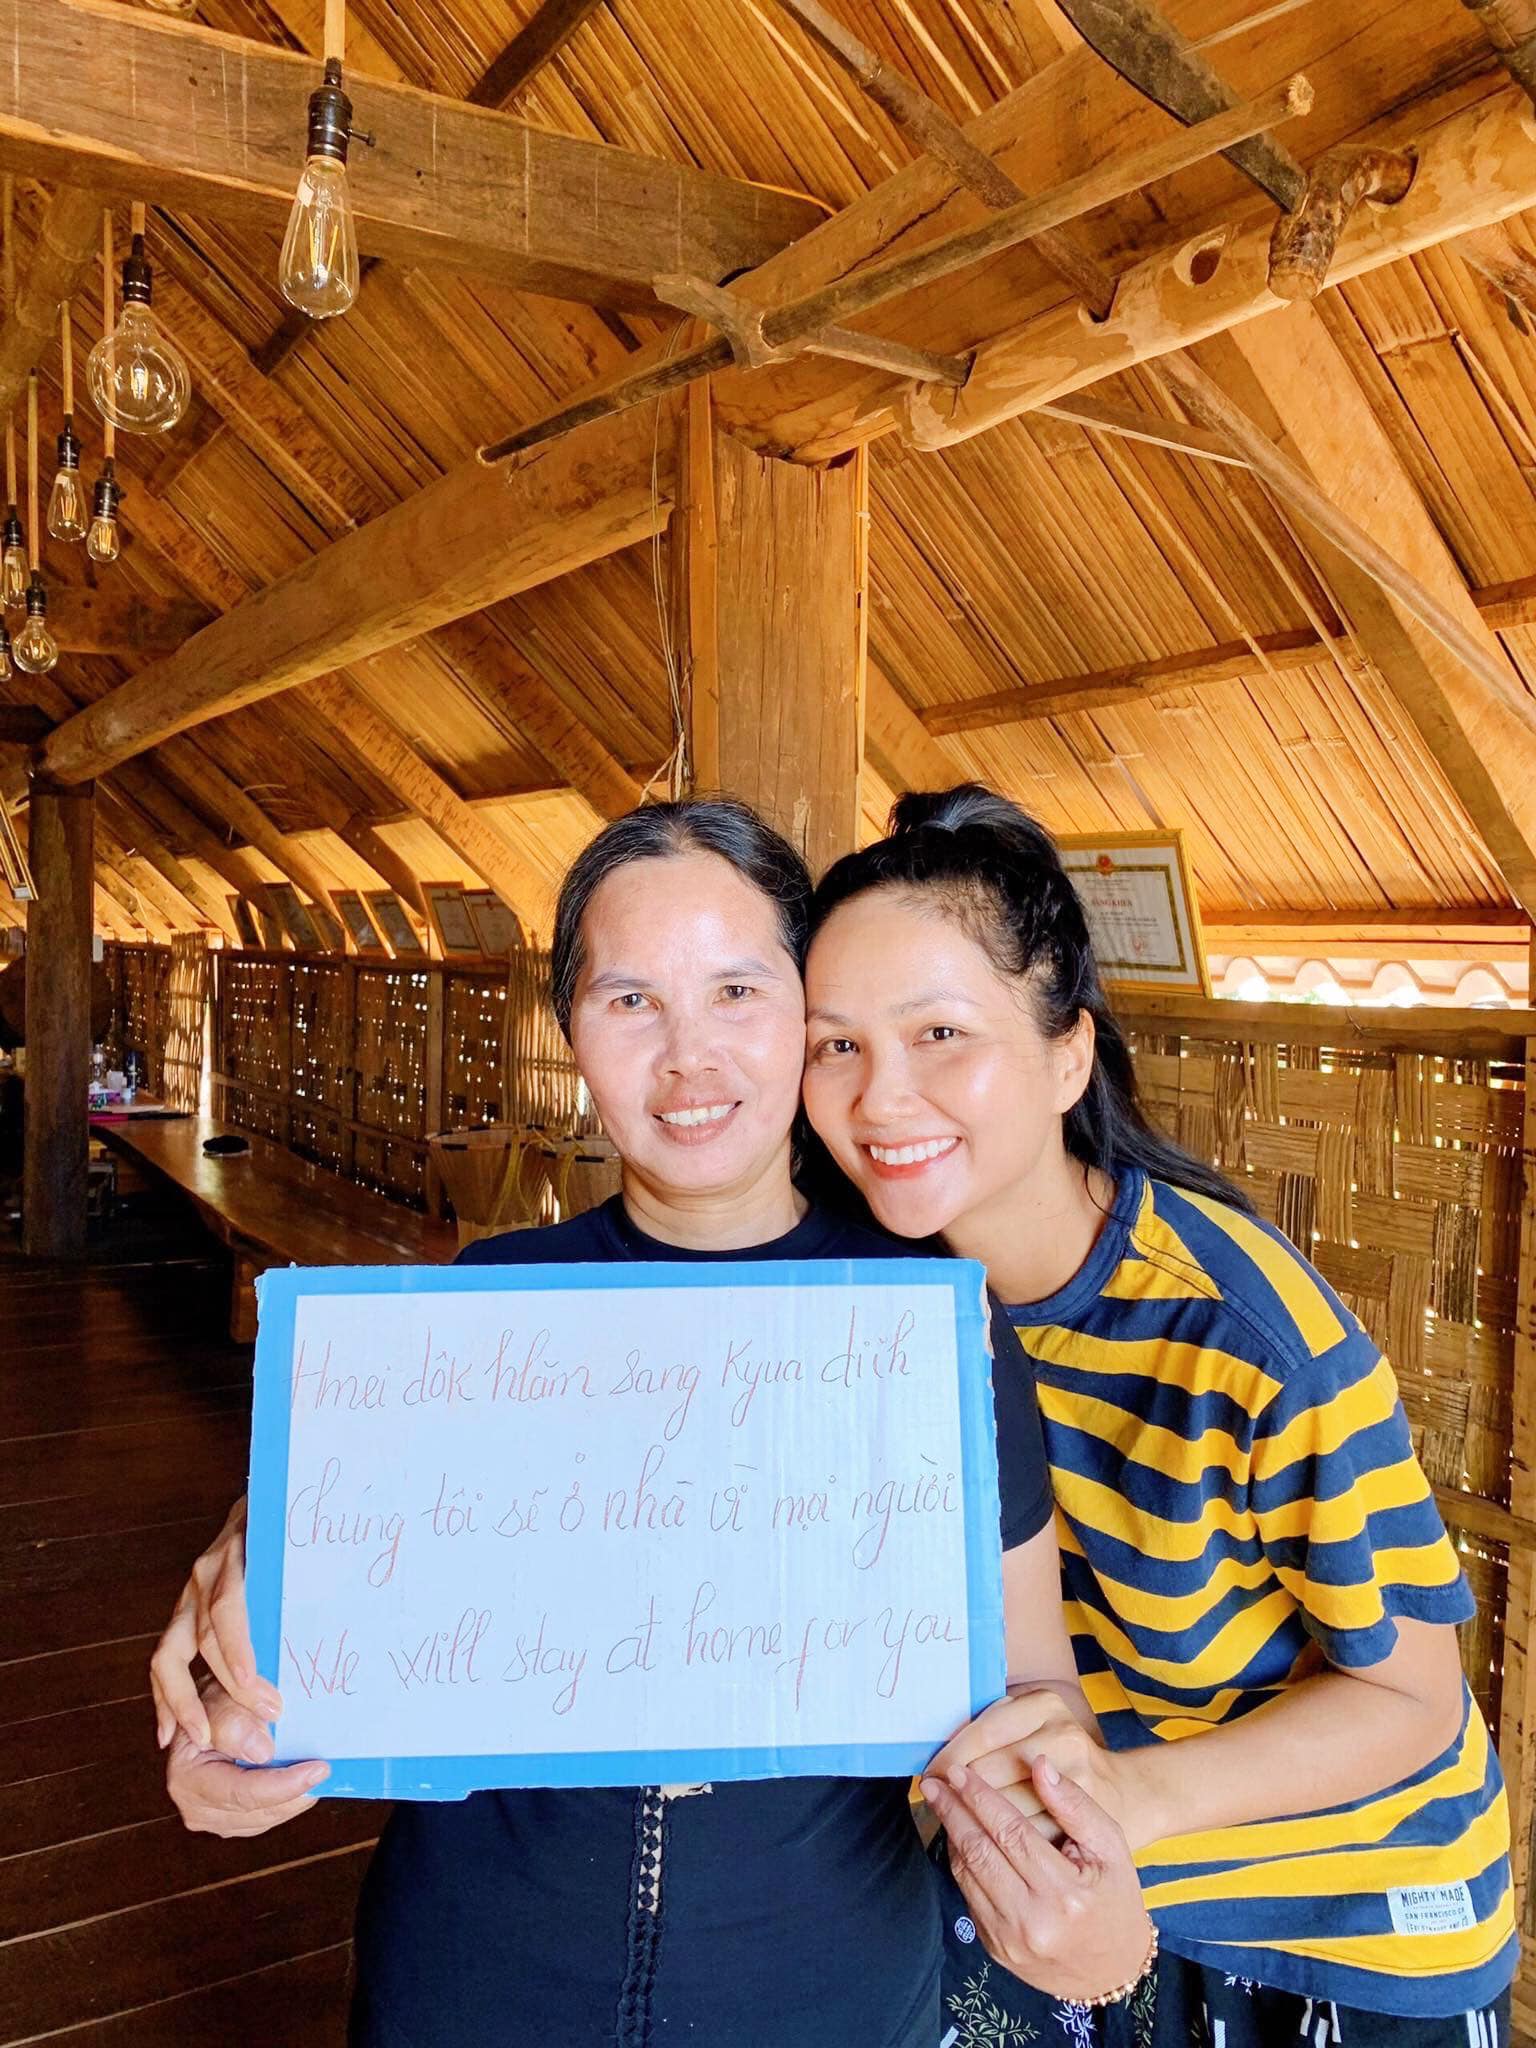 BẰNG KHEN
Hmei dôk hlăm sang Kyua diih
Chúng tôi sẽ ở nhà vì mọi người
We will stay at home for you
MIGHTY MADE
SAN FRANCISCO CA
LEVI STRAUSS AND CO.